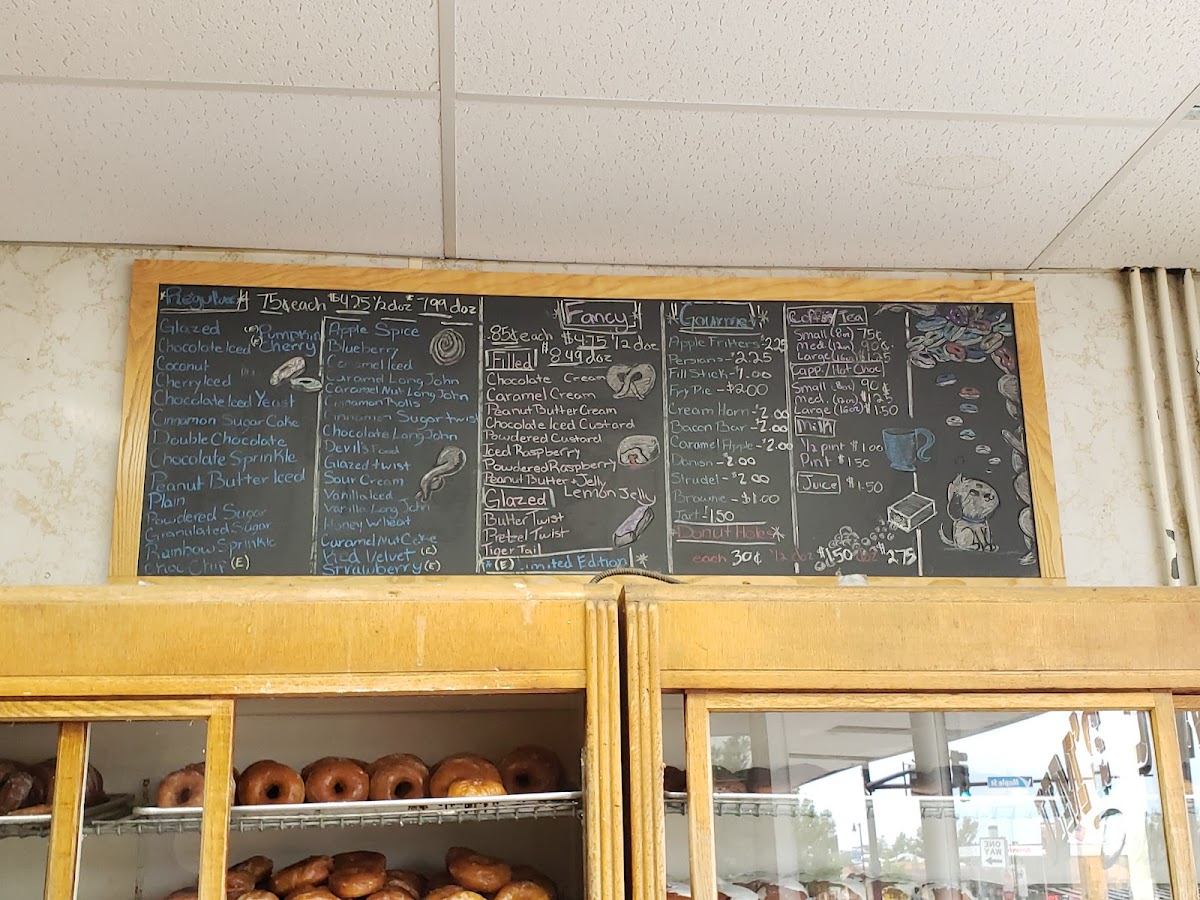 *Regular* 75¢ each $4.25 1/2 doz $7.99 doz
Glazed
Chocolate Iced
Coconut
Cherry Iced
Chocolate Iced Yeast
Cinnamon Sugar Cake
Double Chocolate
Chocolate Sprinkle
Peanut Butter Iced
Plain
Powdered Sugar
Granulated Sugar
Rainbow Sprinkle
Choc Chip (E)
(E) Pumpkin
(E) Cherry
Apple Spice
Blueberry
Caramel Iced
Caramel Long John
Caramel Nut Long John
Cinnamon Rolls
Cinnamon Sugar twist
Chocolate Long John
Devil's Food
Glazed twist
Sour Cream
Vanilla Iced
Vanilla Long John
Honey Wheat
Caramel Nut Cake
Red Velvet (E)
Strawberry (E)
Fancy
.85¢ each $4.75 1/2 doz
$8.49 doz
Filled
Chocolate Cream
Caramel Cream
Peanut Butter Cream
Chocolate Iced Custard
Powdered Custard
Iced Raspberry
Powdered Raspberry
Peanut Butter + Jelly
Lemon Jelly
Glazed
Butter Twist
Pretzel Twist
Tiger Tail
*(E) Limited Edition *
*Gourmet*
Apple Fritters - 2.25
Persians - $2.25
Fill Stick - $1.00
Fry Pie - $2.00
Cream Horn - $2.00
Bacon Bar - $2.00
Caramel Apple - $2.00
Danish - $2.00
Strudel - $2.00
Browne - $1.00
Tart - $1.50
*Donut Holes*
each 30¢ 1/2 doz $1.50 doz $2.75
Coffee/Tea
Small (8oz) 75¢
Med. (12oz) 90¢
Large (16oz) $1.25
Capp./Hot Choc
Small (8oz) 90¢
Med. (12oz) $1.25
Large (16oz) $1.50
Milk
1/2 pint $1.00
Pint $1.50
Juice $1.50
Maple St
ONE
WAY